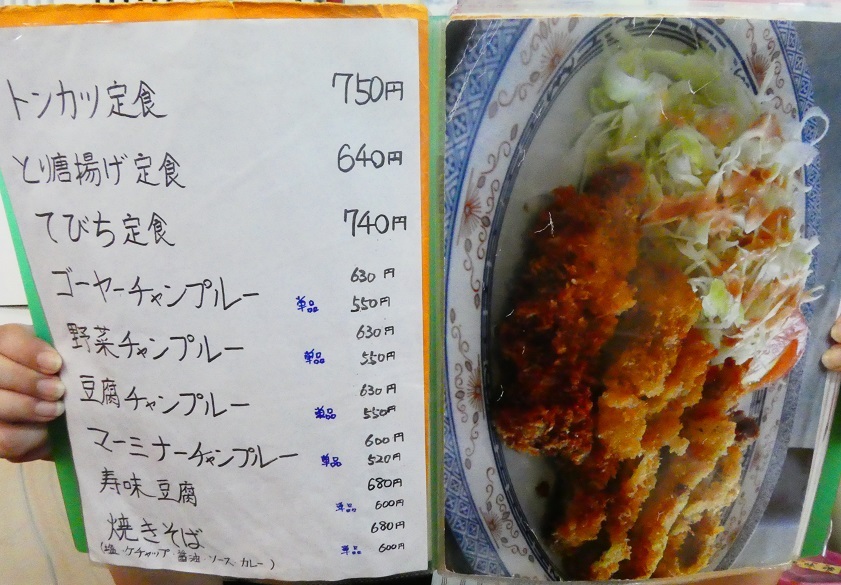 トンカツ定食 750円
とり唐揚げ定食 640円
てびち定食 740円
ゴーヤーチャンプルー 630円
単品 550円
野菜チャンプルー 630円
単品 550円
豆腐チャンプルー 630円
単品 550円
マーミナーチャンプルー 600円
単品 520円
寿味豆腐 680円
単品 600円
焼きそば 680円
(塩 ケチャップ 醤油 ソース カレー) 単品 600円